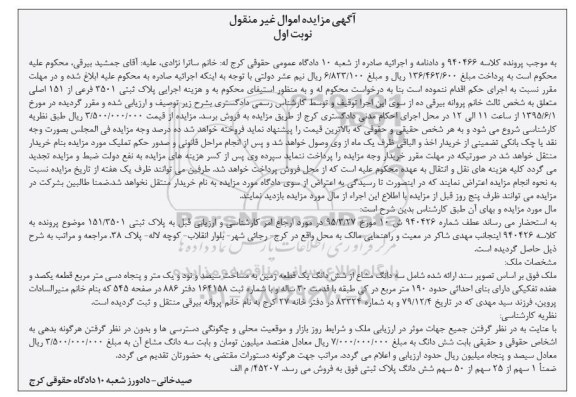 آگهی مزایده اموال غیر منقول
نوبت اول
به موجب پرونده کلاسه ۹۴۰۴۶۶ و دادنامه و اجرائیه صادره از شعبه ۱۰ دادگاه عمومی حقوقی کرج له: خانم سائرا نژادی، علیه: آقای جمشید بیرقی، محکوم علیه
محکوم است به پرداخت مبلغ ۱۳۶/۴۶۲/۶۰۰ ریال و مبلغ ۶/۸۲۳/۱۰۰ ریال نیم عشر دولتی با توجه به اینکه اجرائیه صادره به محکوم علیه ابلاغ شده و در مهلت
مقرر نسبت به اجرای حکم اقدام ننموده است بنا به درخواست محکوم له و به منظور استیفای محکوم به و هزینه اجرایی پلاک ثبتی ۳۵۰۱ فرعی از ۱۵۱ اصلی
متعلق به شخص ثالث خانم پروانه بیرقی ده از سوی این اجرا توقیف و توسط کارشناس رسمی دادگستری بشرح زیر توصیف و ارزیابی شده و مقرر گردیده در مورخ
۱۳۹۵/۶/۱ از ساعت ۱۱ الی ۱۲ در محل اجرای احکام مدنی دادگستری کرج از طریق مزایده به فروش برسد. مزایده از قیمت ۳/۵۰۰/۰۰۰/۰۰۰ ریال طبق نظریه
کارشناسی شروع می شود و به هر شخص حقیقی و حقوقی که بالاترین قیمت را پیشنهاد نماید فروخته خواهد شد ده درصد وجه مزایده فی المجلس بصورت وجه
نقد یا چک بانکی تضمینی از خریدار اخذ و الباقی ظرف یک ماه از وی وصول خواهد شد و پس از انجام مراحل قانونی و صدور حکم تملیک مورد مزایده بنام خریدار
منتقل خواهد شد در صورتیکه در مهلت مقرر خریدار وجه مزایده را پرداخت ننماید سپرده وی پس از کسر هزینه های مزایده به نفع دولت ضبط و مزایده تجدید
می گردد کلیه هزینه های نقل و انتقال به عهده محکوم علیه است که از محل فروش پرداخت خواهد شد. طرفین می توانند ظرف یک هفته از تاریخ مزایده نسبت
به نحوه انجام مزایده اعتراض نمایند که در اینصورت تا رسیدگی به اعتراض از سوی دادگاه مورد مزایده به نام خریدار منتقل نخواهد شد.ضمنا طالبین بشرکت در
مزایده می توانند ظرف پنج روز قبل از مزایده با اطلاع این اجراء از مال مورد مزایده بازدید نمایند.
مال مورد مزایده و بهای آن طبق کارشناسی بدین شرح است:
به استحضار می رساند عطف شماره ۹۴۰۴۲۶ ش ۱۰ مورخ ۹۵/۳/۲۷ در مورد ارجاع امر کارشناسی و ارزیابی قبل به پلاک ثبتی ۱۵۱/۳۵۰۱ موضوع پرونده به
کلاسه ۹۴۰۴۲۶ اینجانب مهدی شاکر در معیت و راهنمایی مالک به محل واقع در کرج- رجائی شهر- بلوار انقلاب- کوچه لاله- پلاک ۳۸، مراجعه و مراتب به شرح
ذیل حاصل گردیده است.
مشخصات ملک:
ملک فوق بر اساس تصویر سند ارائه شده شامل سه دانگ مشاع از شش دانگ یک قطعه زمین به مساحت سیصد و نود و یک متر و پنجاه دسی متر مربع قطعه یکصد و
هفده تفکیکی دارای بنای احداثی حدود ۱۹۰ متر مربع در کل طبقه با قدمت ۳۰ ساله و با شماره ثبت ۱۶۴۱۵۸ دفتر ۸۸۶ در صفحه ۵۴۵ که بنام خانم منیرالسادات
پروین، فرزند سید مهدی که در تاریخ ۷۹/۱۲/۴ و به شماره ۸۳۲۲۴ در دفتر خانه ۲۷ کرج به نام خانم پروانه بیرقی منتقل و ثبت گردیده است.
نظریه کارشناسی:
با عنایت به در نظر گرفتن جمیع جهات موثر در ارزیابی ملک و شرایط روز بازار و موقعیت محلی و چگونگی دسترسی ها و بدون در نظر گرفتن هرگونه بدهی به
اشخاص حقوقی و حقیقی بابت شش دانگ به مبلغ ۷/۰۰۰/۰۰۰/۰۰۰ ریال معادل هفتصد میلیون تومان و بابت سه دانگ مشاع آن به مبلغ ۳/۵۰۰/۰۰۰/۰۰۰ ریال
معادل سیصد و پنجاه میلیون ریال حدود ارزیابی و اعلام می گردد. مراتب جهت هرگونه دستورات مقتضی به حضورتان تقدیم می گردد.
ضمناً ۱ سهم از ۲۵ سهم از ۵۰ سهم شش دانگ پلاک ثبتی فوق به فروش می رسد. ۴۵۲۰۷/ م الف
صیدخانی- دادورز شعبه ۱۰ دادگاه حقوقی کرج